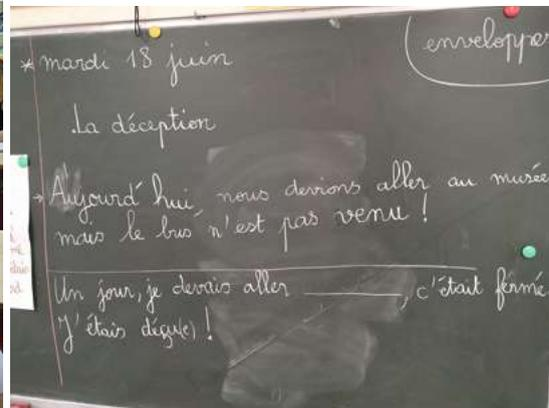 * mardi 18 juin
(enveloppe
La déception
→ Aujourd'hui, nous devions aller au musée
mais le bus n'est pas venu !
Un jour, je devais aller ________, c'était fermé
J'étais déçu(e) !